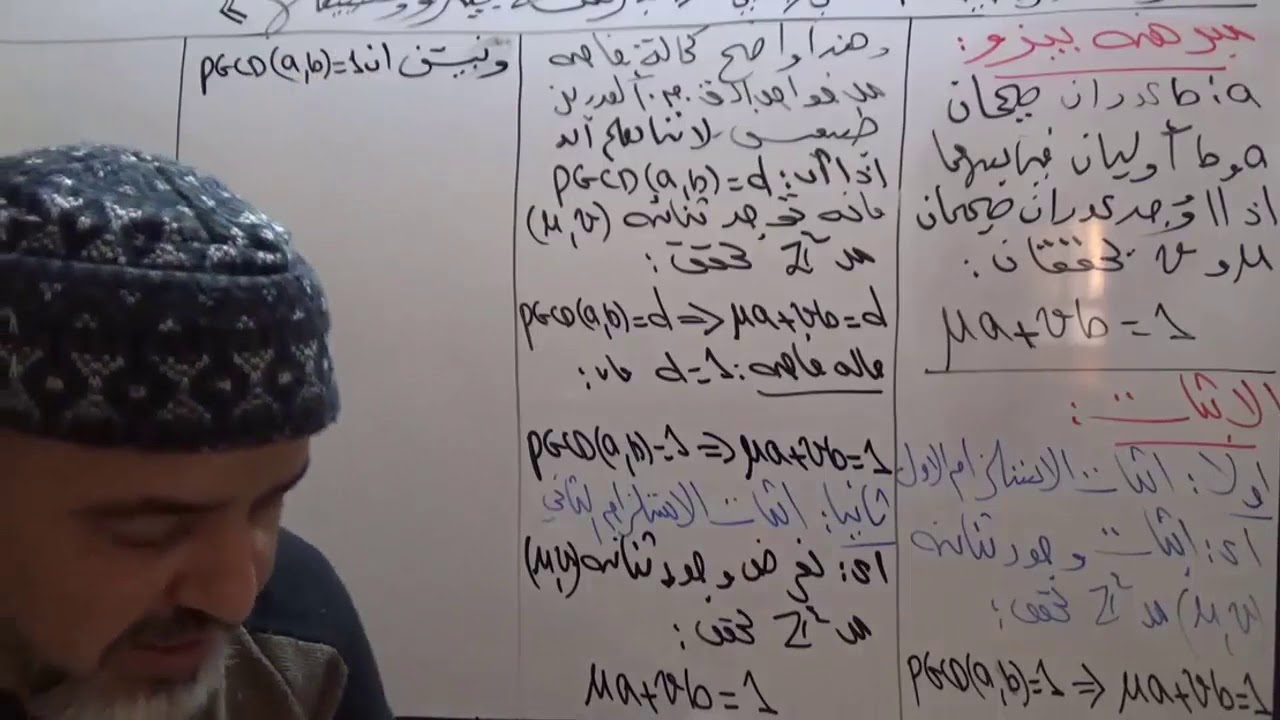 مبرهنة بيزو:
a؛ b عددان صحيحان
a و b أوليان فيما بينهما
اذا وجد عددان صحيحان
μ و v يحققان:
μa+vb=1
الإثبات:
اولا: اثبات الاستلزام الاول
اي: إثبات وجود ثنائية
(μ,v) من Z² تحقق:
PGCD(a,b)=1 ⇒ μa+vb=1
وهذا واضح كحالة خاصة
من خواص القاسم
طبيعيين لأننا نعلم أنه
اذا كان: PGCD(a,b)=d
فانه توجد ثنائية (μ,v)
من Z² تحقق:
PGCD(a,b)=d ⇒ μa+vb=d
حالة خاصة: d=1 فان:
PGCD(a,b)=1 ⇒ μa+vb=1
ثانيا: اثبات الاستلزام الثاني
اي: نفرض وجود ثنائية (μ,v)
من Z² تحقق:
μa+vb=1
ونبين ان PGCD(a,b)=1